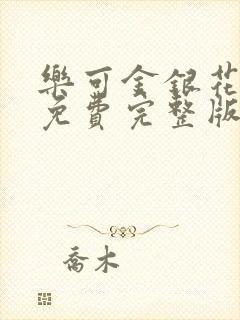 樂可金銀花
免費完整版
喬木